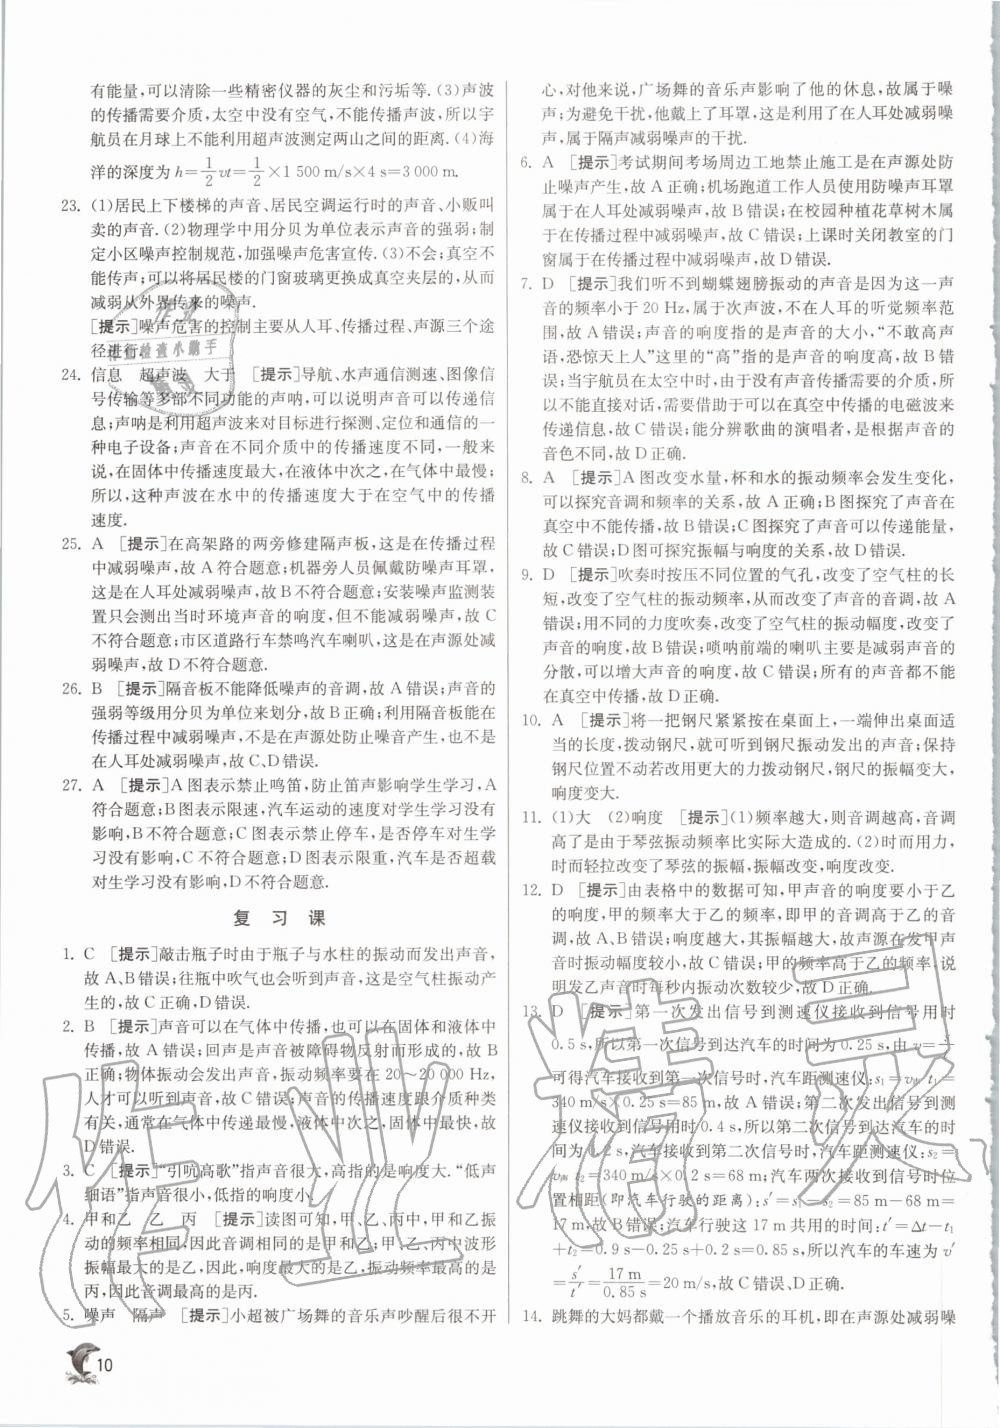 有能量,可以清除一些精密仪器的灰尘和污垢等.(3)声波
的传播需要介质,太空中没有空气,不能传播声波,所以宇
航员在月球上不能利用超声波测定两山之间的距离.(4)海
洋的深度为h=1/2vt=1/2×1 500 m/s×4 s=3 000 m.
23. (1)居民上下楼梯的声音、居民空调运行时的声音、小贩叫
卖的声音.(2)物理学中用分贝为单位表示声音的强弱;制
定小区噪声控制规范,加强噪声危害宣传.(3)不会;真空不
能传声;可以将居民楼的门窗玻璃更换成真空夹层的,从而
减弱从外界传来的噪声.
[提示]噪声危害的控制主要从人耳、传播过程、声源三个途
径进行.
24. 信息 超声波 大于 [提示]导航、水声通信测速、图像信
号传输等多部不同功能的声呐,可以说明声音可以传递信
息;声呐是利用超声波来对目标进行探测、定位和通信的一
种电子设备;声音在不同介质中的传播速度不同,一般来
说,在固体中传播速度最大,在液体中次之,在气体中最慢;
所以,这种声波在水中的传播速度大于在空气中的传播
速度.
25. A [提示]在高架路的两旁修建隔声板,这是在传播过程
中减弱噪声,故A符合题意;机器旁人员佩戴防噪声耳罩,
这是在人耳处减弱噪声,故B不符合题意;安装噪声监测装
置只会测出当时环境声音的响度,但不能减弱噪声,故C
不符合题意;市区道路行车禁鸣汽车喇叭,这是在声源处减
弱噪声,故D不符合题意.
26. B [提示]隔音板不能降低噪声的音调,故A错误;声音的
强弱等级用分贝为单位来划分,故B正确;利用隔音板能在
传播过程中减弱噪声,不是在声源处防止噪音产生,也不是
在人耳处减弱噪声,故C、D错误.
27. A [提示]A图表示禁止鸣笛,防止笛声影响学生学习,A
符合题意;B图表示限速,汽车运动的速度对学生学习没有
影响,B不符合题意;C图表示禁止停车,是否停车对学习没
有影响,C不符合题意;D图表示限重,汽车是否超载
对生学习没有影响,D不符合题意.
复 习 课
1. C [提示]敲击瓶子时由于瓶子与水柱的振动而发出声音,
故A、B错误;往瓶中吹气也会听到声音,这是空气柱振动产
生的,故C正确,D错误.
2. B [提示]声音可以在气体中传播,也可以在固体和液体中
传播,故A错误;回声是声音被障碍物反射而形成的,故B
正确;物体振动会发出声音,但频率要在20~20 000 Hz,
人才可以听到,故C错误;声音的传播速度跟介质的种类
有关,通常在气体中传递最慢,液体中次之,固体中最快,故
D错误.
3. C [提示]“引吭高歌”指声音很大,高指的是响度大.“低声
细语”指声音很小,低指的响度小.
4. 甲和乙 乙 丙 [提示]读图可知,甲、乙、丙中,甲和乙振
动的频率相同,因此音调相同;由图可知,甲、乙、丙中波形
振幅最大的是乙,因此,响度最大的是乙,频率最高的是丙,
因此,音调最高的是丙.
5. 噪声 隔声 [提示]小超被广场舞的音乐声吵醒后很不开
10
心,对他来说,广场舞的音乐声影响了他的休息,故属于噪
声;为避免干扰,他戴上了耳罩,这是利用了在人耳处减弱噪
声,属于隔声减弱噪声的干扰.
6. A [提示]考试期间考场周边工地禁止施工是在声源处防
止噪声产生,故A正确;机场跑道工作人员使用防噪声耳罩
属于在人耳处减弱噪声,故B错误;在校园种植花草树木属
于在传播过程中减弱噪声,故C错误;上课时关闭教室的门
窗属于在传播过程中减弱噪声,故D错误.
7. D [提示]我们听不到蝴蝶翅膀振动的声音是因为这一声
音的频率小于20 Hz,属于次声波,不在人耳的听觉频率范
围,故A错误;声音的响度指的是声音的大小,“不敢高声
语,恐惊天上人”这里的“高”指的是声音的响度高,故B错
误;当宇航员在太空中时,由于没有声音传播需要的介质,所
以不能直接对话,需要借助于可以在真空中传播的电磁波来
传递信息,故C错误;能分辨歌曲的演唱者,是根据声音的
音色不同,故D正确.
8. A [提示]A图改变水量,杯和水的振动频率会发生变化,
可以探究音调和频率的关系,故A正确;B图探究了声音在
真空中不能传播,故B错误;C图探究了声音可以传递能量,
故C错误;D图可探究振幅与响度的关系,故D错误.
9. D [提示]吹奏时按压不同位置的气孔,改变了空气柱的长
短,改变了空气柱的振动频率,从而改变了声音的音调,故A
错误;用不同的力度吹奏,改变了空气柱的振动幅度,改变了
声音的响度,故B错误;唢呐前端的喇叭主要是减弱声音的
分散,可以增大声音的响度,故C错误;所有的声音都不能
在真空中传播,故D正确.
10. A [提示]将一把钢尺紧紧按在桌面上,一端伸出桌面适
当的长度,拨动钢尺,就可听到钢尺振动发出的声音;保持
钢尺位置不动若改用更大的力拨动钢尺,钢尺的振幅变大,
响度变大.
11. (1)大 (2)响度 [提示](1)频率越大,则音调越高,音调
高了是由于琴弦振动频率比实际大造成的.(2)时而用力,
时而轻拉改变了琴弦的振幅,振幅改变,响度改变.
12. D [提示]由表格中的数据可知,甲声音的响度要小于乙
的响度,甲的频率大于乙的频率,即甲的音调高于乙的音
调,故A、B错误;响度越大,其振幅越大,故声源在发甲声
音时振动幅度较小,故C错误;甲的频率高于乙的频率,说
明发乙声音时每秒内振动次数较少,故D正确.
13. D [提示]第一次发出信号到测速仪接收到信号用时
0.5 s,所以第一次信号到达汽车的时间为0.25 s,由v=s/t
可得汽车接收到第一次信号时,汽车距测速仪:s₁=v声t₁=
340 m/s×0.25 s=85 m,故A错误;第二次发出信号到测
速仪接收到信号用时0.4 s,所以第二次信号到达汽车的时
间为0.2 s,汽车接收到第二次信号时,汽车距测速仪:s₂=
v声t₂=340 m/s×0.2 s=68 m;汽车两次接收到信号时位
置相距(即汽车行驶的距离):s′=s₁-s₂=85 m-68 m=
17 m,故B错误;汽车行驶这17 m共用的时间:t′=Δt-t₁
+t₂=0.9 s-0.25 s+0.2 s=0.85 s,所以汽车的车速为v′
=s′/t′=17 m/0.85 s=20 m/s,故C错误、D正确.
14. 跳舞的大妈都戴一个播放音乐的耳机,即在声源处减弱噪